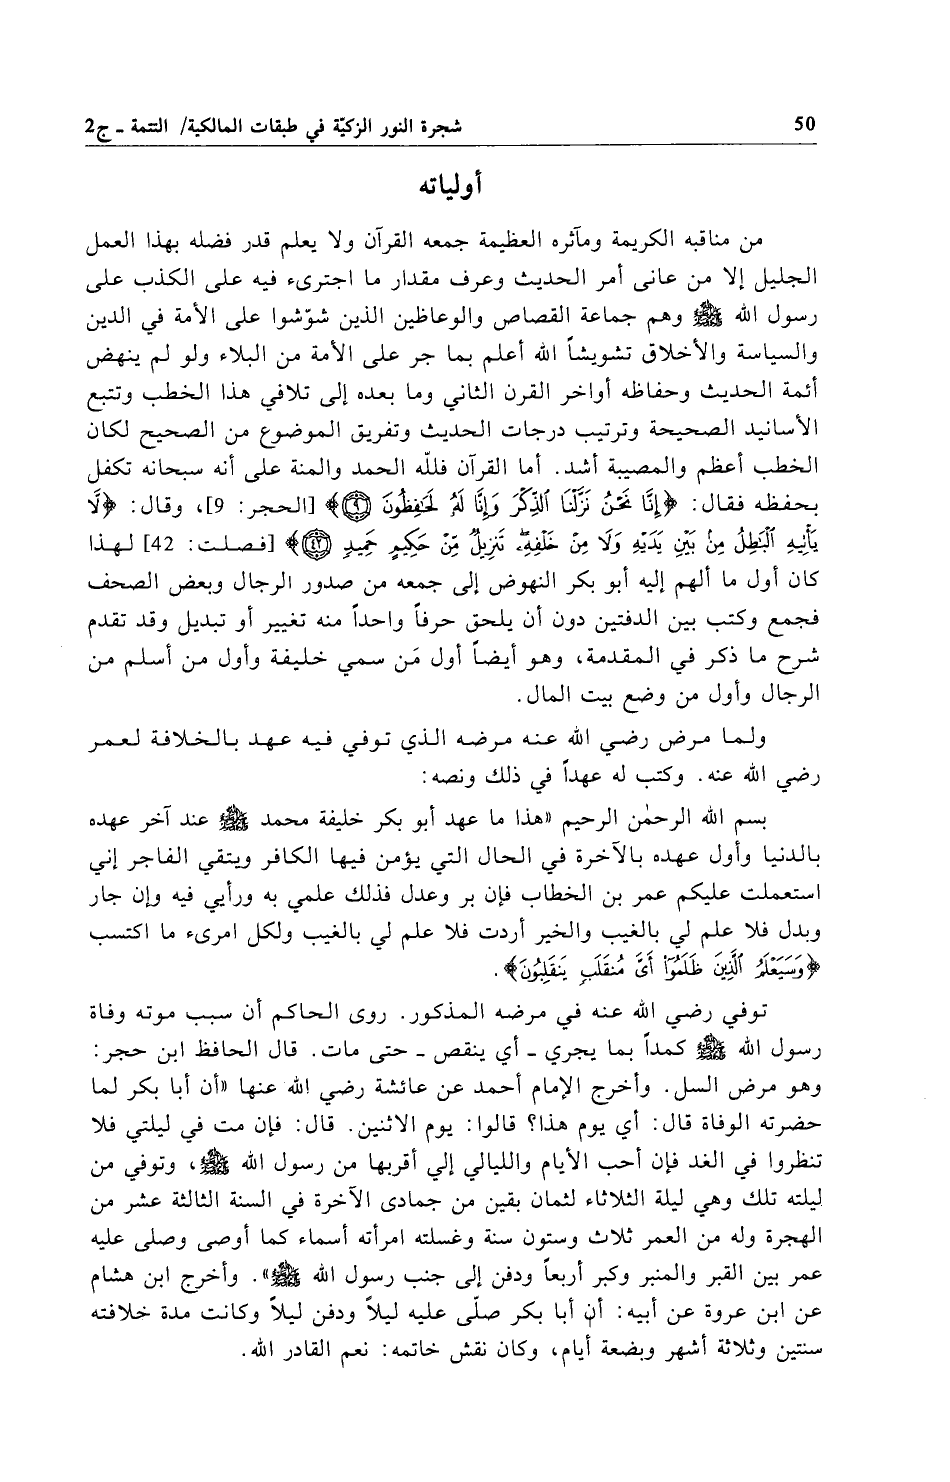 50 شجرة النور الزكيّة في طبقات المالكية/ التتمة ـ ج2
أولياته
من مناقبه الكريمة ومآثره العظيمة جمعه القرآن ولا يعلم قدر فضله بهذا العمل
الجليل إلا من عانى أمر الحديث وعرف مقدار ما اجترىء فيه على الكذب على
رسول الله ﷺ وهم جماعة القصاص والوعاظين الذين شوّشوا على الأمة في الدين
والسياسة والأخلاق تشويشاً الله أعلم بما جر على الأمة من البلاء ولو لم ينهض
أئمة الحديث وحفاظه أواخر القرن الثاني وما بعده إلى تلافي هذا الخطب وتتبع
الأسانيد الصحيحة وترتيب درجات الحديث وتفريق الموضوع من الصحيح لكان
الخطب أعظم والمصيبة أشد. أما القرآن فللّه الحمد والمنة على أنه سبحانه تكفل
بحفظه فقال: ﴿إِنَّا نَحْنُ نَزَّلْنَا ٱلذِّكْرَ وَإِنَّا لَهُۥ لَحَٰفِظُونَ ۝٩﴾ [الحجر: 9]، وقال: ﴿لَّا
يَأْنِيهِ ٱلْبَٰطِلُ مِنۢ بَيْنِ يَدَيْهِ وَلَا مِنْ خَلْفِهِۦۖ تَنزِيلٌ مِّنْ حَكِيمٍ حَمِيدٍ ۝٤٢﴾ [فصلت: 42] لهذا
كان أول ما ألهم إليه أبو بكر النهوض إلى جمعه من صدور الرجال وبعض الصحف
فجمع وكتب بين الدفتين دون أن يلحق حرفاً واحداً منه تغيير أو تبديل وقد تقدم
شرح ما ذكر في المقدمة، وهو أيضاً أول مَن سمي خليفة وأول من أسلم من
الرجال وأول من وضع بيت المال.
ولما مرض رضي الله عنه مرضه الذي توفي فيه عهد بالخلافة لعمر
رضي الله عنه. وكتب له عهداً في ذلك ونصه:
بسم الله الرحمٰن الرحيم «هذا ما عهد أبو بكر خليفة محمد ﷺ عند آخر عهده
بالدنيا وأول عهده بالآخرة في الحال التي يؤمن فيها الكافر ويتقي الفاجر إني
استعملت عليكم عمر بن الخطاب فإن بر وعدل فذلك علمي به ورأيي فيه وإن جار
وبدل فلا علم لي بالغيب والخير أردت فلا علم لي بالغيب ولكل امرىء ما اكتسب
﴿وَسَيَعْلَمُ ٱلَّذِينَ ظَلَمُوٓا۟ أَىَّ مُنقَلَبٍ يَنقَلِبُونَ﴾.
توفي رضي الله عنه في مرضه المذكور. روى الحاكم أن سبب موته وفاة
رسول الله ﷺ كمداً بما يجري ـ أي ينقص ـ حتى مات. قال الحافظ ابن حجر:
وهو مرض السل. وأخرج الإمام أحمد عن عائشة رضي الله عنها «أن أبا بكر لما
حضرته الوفاة قال: أي يوم هذا؟ قالوا: يوم الاثنين. قال: فإن مت في ليلتي فلا
تنظروا في الغد فإن أحب الأيام والليالي إلي أقربها من رسول الله ﷺ، وتوفي من
ليلته تلك وهي ليلة الثلاثاء لثمان بقين من جمادى الآخرة في السنة الثالثة عشر من
الهجرة وله من العمر ثلاث وستون سنة وغسلته امرأته أسماء كما أوصى وصلى عليه
عمر بين القبر والمنبر وكبر أربعاً ودفن إلى جنب رسول الله ﷺ». وأخرج ابن هشام
عن ابن عروة عن أبيه: أن أبا بكر صلّى عليه ليلاً ودفن ليلاً وكانت مدة خلافته
سنتين وثلاثة أشهر وبضعة أيام، وكان نقش خاتمه: نعم القادر الله.